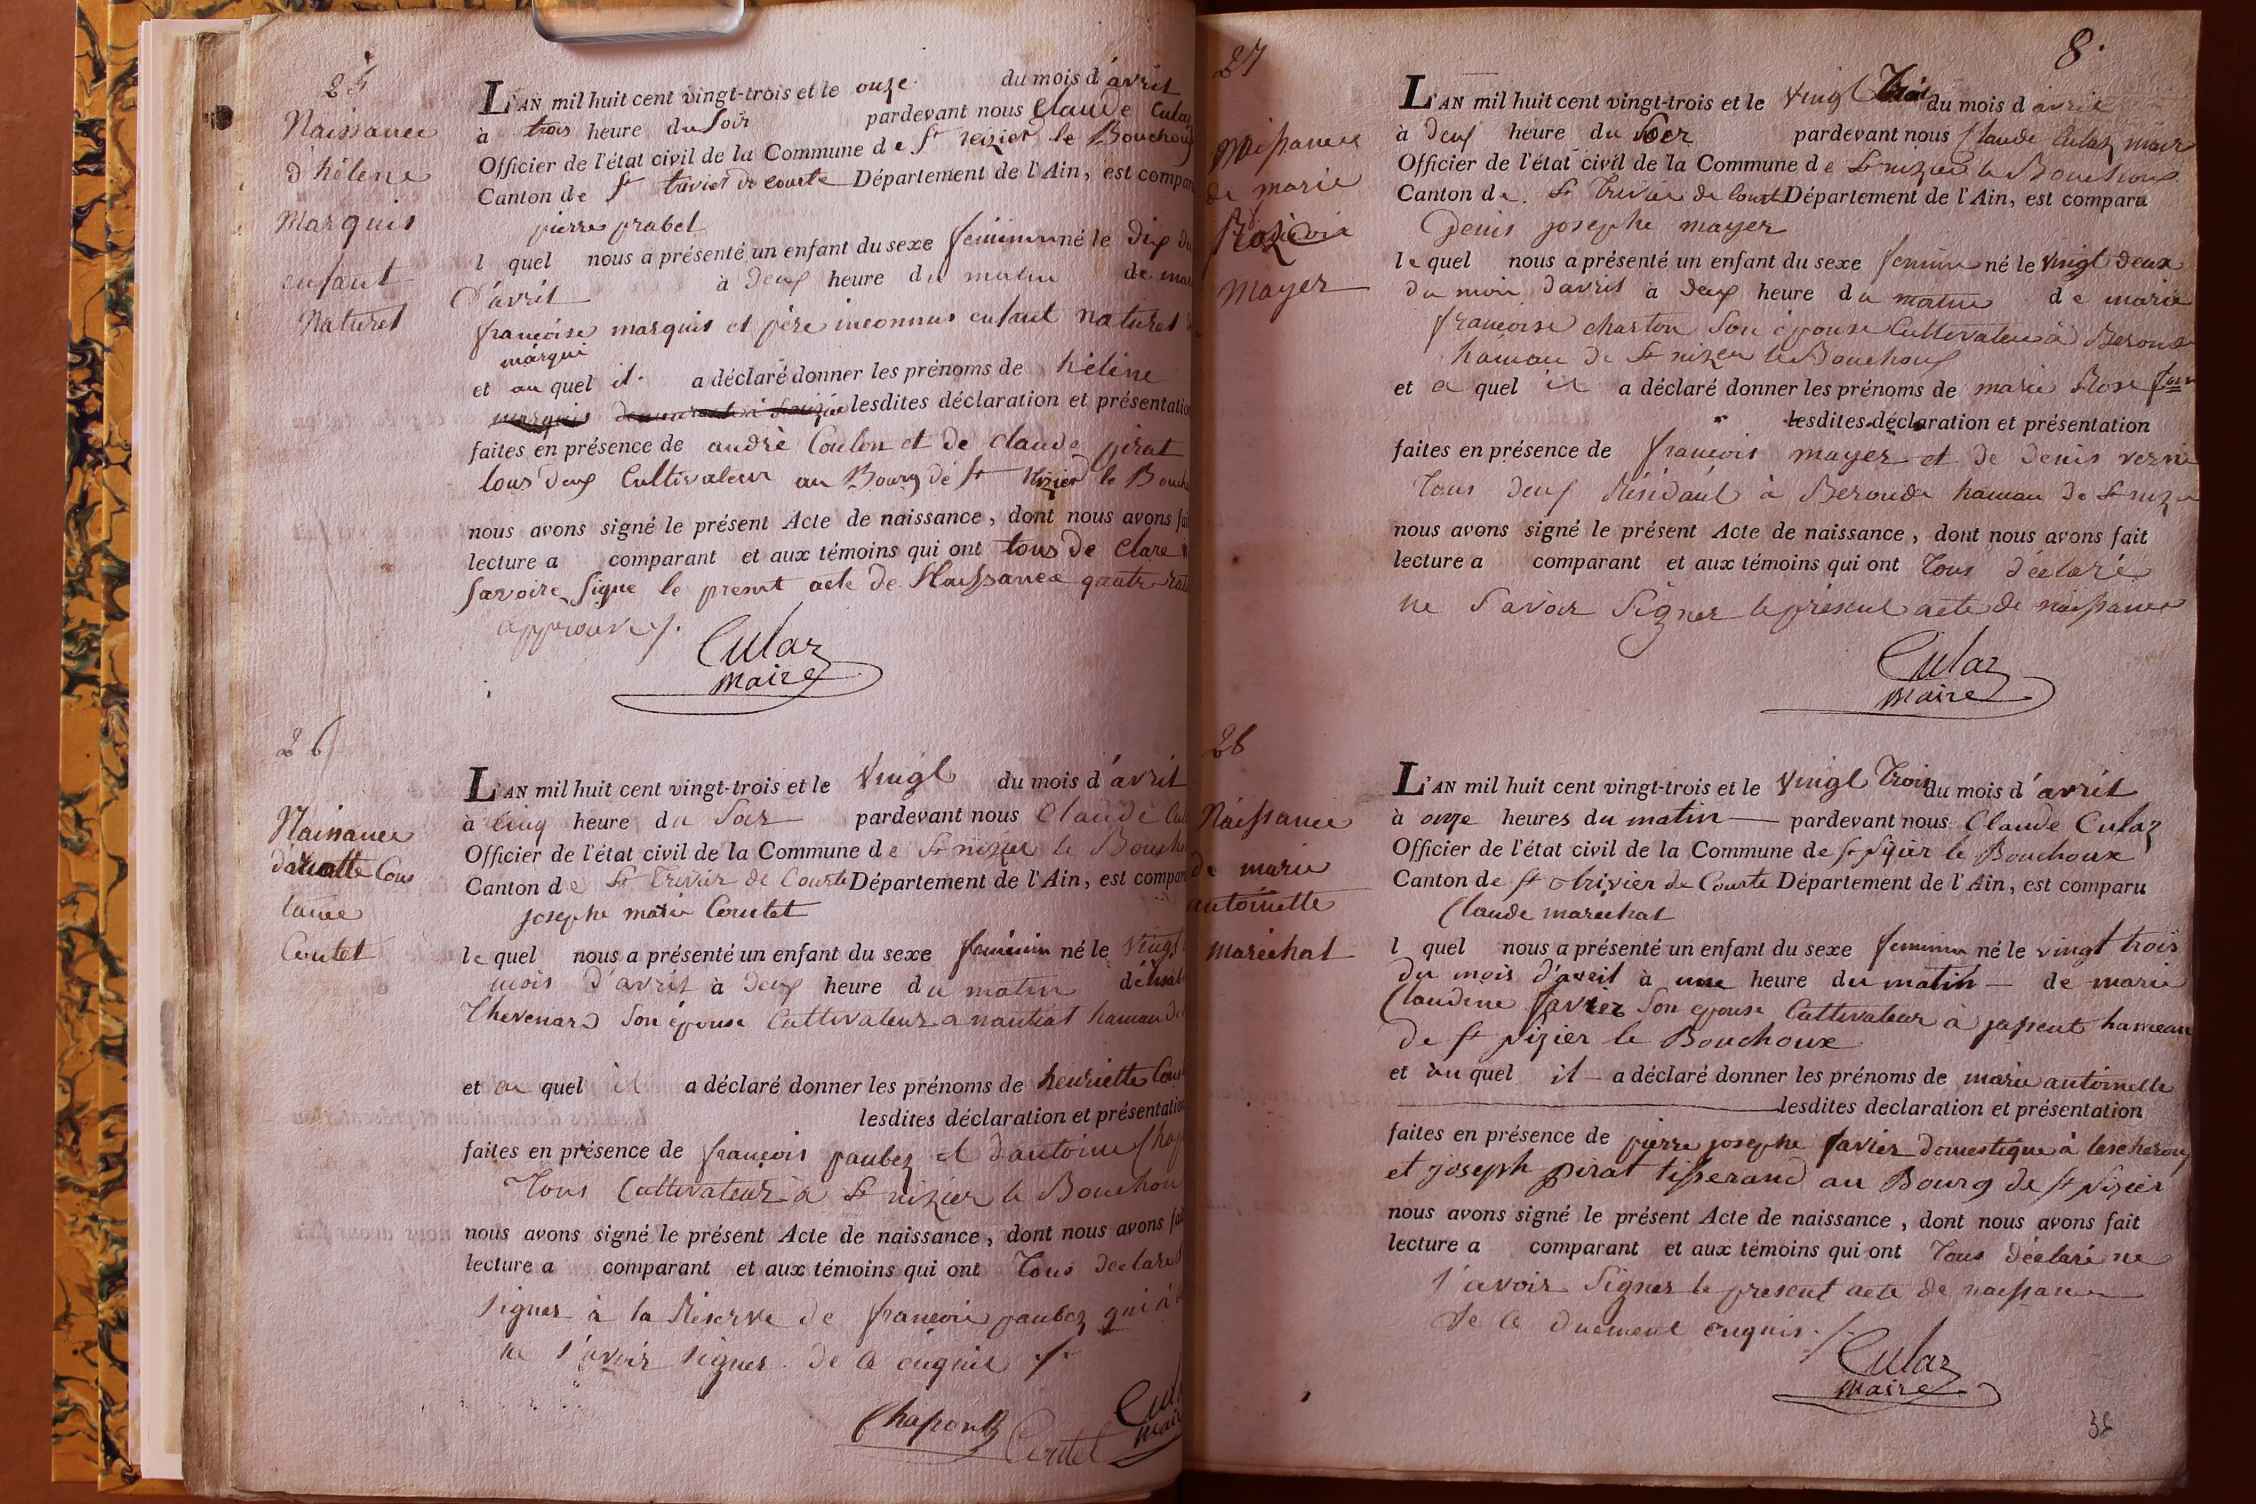 25
Naissance
d'hélene
Marquis
enfant
Naturel
L'AN mil huit cent vingt-trois et le onze du mois d'avril
à trois heure du Soir pardevant nous Claude Culaz
Officier de l'état civil de la Commune de St nizier le Bouchoux
Canton de St trivier de courte Département de l'Ain, est compar
pierre prabel
l quel nous a présenté un enfant du sexe feminin né le Dix du
D'avril à Deux heure du matin de mar
françoise marquis et père inconnus enfant naturel
marqui
et au quel il a déclaré donner les prénoms de hélène
marquis lesdites déclaration et présentation
faites en présence de andrè Coulon et de claude pirat
tous deux Cultivateur au Bourg de St Nizier le Bouch
nous avons signé le présent Acte de naissance, dont nous avons fai
lecture a comparant et aux témoins qui ont tous de Clare
Savoire Signe le presnt acte de Naissance
approuvé
Culaz
Maire
26
Naissance
Cons
tance
Coutet
L'AN mil huit cent vingt-trois et le vingt du mois d'avril
à Cinq heure du Soir pardevant nous Claude Cul
Officier de l'état civil de la Commune de St nizier le Bouch
Canton de St Trivier de Courte Département de l'Ain, est compar
josephe marie Coutet
le quel nous a présenté un enfant du sexe feminin né le vingt
mois d'avril à Deux heure du matin
Thevenard Son épouse Cultivateur a nantiat hameau de
et au quel il a déclaré donner les prénoms de henriette Cons
lesdites déclaration et présentation
faites en présence de françois paubez et d'antoine Chap
Tous Cultivateur à St nizier le Bouchou
nous avons signé le présent Acte de naissance, dont nous avons fai
lecture a comparant et aux témoins qui ont Tous declare
signer à la Réserve de françois paubez qui a
ne s'avoir signer de ce enquis
Chapon Coutet Cul
Mair
8.
27
Naissance
de marie
Roz
Mayer
L'AN mil huit cent vingt-trois et le vingt Trois du mois d avril
à Deux heure du Soir pardevant nous Claude Culaz maire
Officier de l'état civil de la Commune de St nizier le Bouchoux
Canton de St Trivier de Courte Département de l'Ain, est comparu
Denis josephe mayer
le quel nous a présenté un enfant du sexe feminin né le vingt deux
du mois d'avril à deux heure du matin de marie
françoise charton Son épouse Cultivateur à Beroude
hameau de St nizier le Bouchoux
et a quel il a déclaré donner les prénoms de marie Rose
lesdites déclaration et présentation
faites en présence de françois mayer et de denis verne
Tous deux Résidant à Beroude hameau de St nizier
nous avons signé le présent Acte de naissance, dont nous avons fait
lecture a comparant et aux témoins qui ont Tous déclaré
ne Savoir Signer le présent acte de naissance
Culaz
Maire
28
Naissance
de marie
antoinette
maréchal
L'AN mil huit cent vingt-trois et le vingt Trois du mois d'avril
à onze heures du matin pardevant nous Claude Culaz
Officier de l'état civil de la Commune de St Nizier le Bouchoux
Canton de St trivier de Courte Département de l'Ain, est comparu
Claude marechal
l quel nous a présenté un enfant du sexe feminin né le vingt trois
du mois d'avril à une heure du matin de marie
Claudine favier Son épouse Cultivateur à hameau
de St Nizier le Bouchoux
et au quel il a déclaré donner les prénoms de marie antoinette
lesdites declaration et présentation
faites en présence de pierre josephe favier domestique à lescheroux
et joseph pirat tisserand au Bourg de St Nizier
nous avons signé le présent Acte de naissance, dont nous avons fait
lecture a comparant et aux témoins qui ont Tous déclaré ne
s'avoir Signer le present acte de naissance
de ce duement enquis
Culaz
Maire